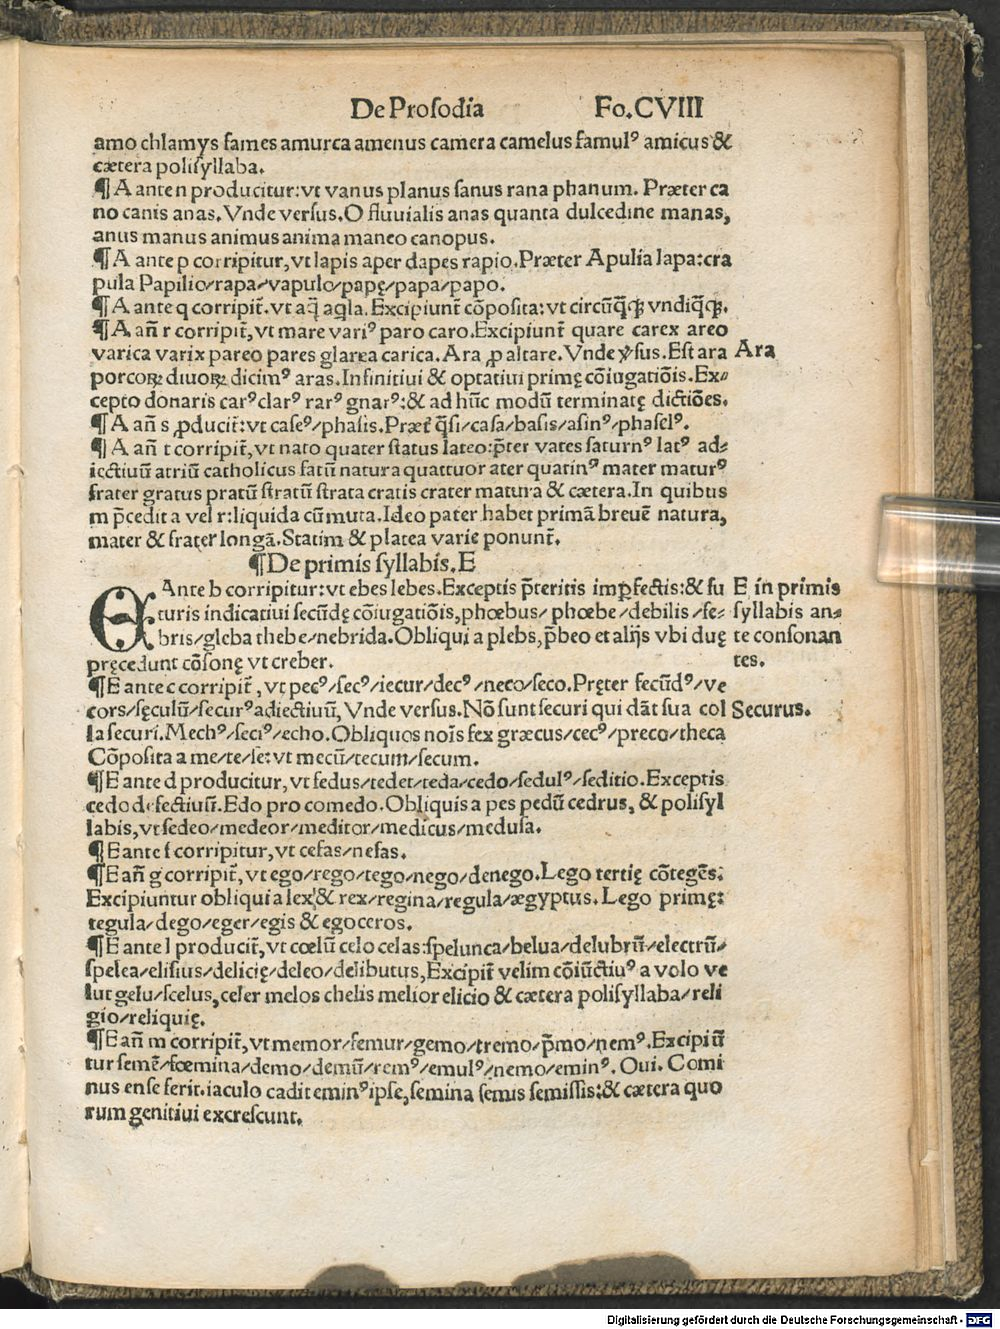 De Prosodia Fo.CVIII
amo chlamys fames amurca amenus camera camelus famulꝰ amicus &
cætera polisyllaba.
¶ A ante n producitur: vt vanus planus sanus rana phanum. Præter ca
no canis anas. Vnde versus. O fluuialis anas quanta dulcedine manas,
anus manus animus anima maneo canopus.
¶ A ante p corripitur, vt lapis aper dapes rapio. Præter Apulia lapa: cra
pula Papilio/rapa/vapulo/papę/papa/papo.
¶ A ante q corripit̄. vt aq̄ aq̄la. Excipiunt̄ cōposita: vt circūq̄ꝗ vndiq̄ꝗ.
¶ A an̄ r corripit̄, vt mare variꝰ paro caro. Excipiunt̄ quare carex areo
varica varix pareo pares glarea carica. Ara ꝓ altare. Vnde ꝟsus. Est ara Ara
porcoꝝ diuoꝝ dicimꝰ aras. Infinitiui & optatiui primę cōiugatiōis. Ex⸗
cepto donaris carꝰ clarꝰ rarꝰ gnarꝰ: & ad hūc modū terminatę dictiōes.
¶ A an̄ s ꝓducit̄: vt caseꝰ/phasis. Præt̄ q̄si/casa/basis/asinꝰ/phaselꝰ.
¶ A an̄ t corripit̄, vt nato quater status lateo: p̄ter vates saturnꝰ latꝰ ad⸗
iectiuū atriū catholicus fatū natura quattuor ater quatinꝰ mater maturꝰ
frater gratus pratū stratū strata cratis crater matura & cætera. In quibus
m p̄cedit a vel r: liquida cū muta. Ideo pater habet primā breuē natura,
mater & frater longā. Statim & platea varie ponunt̄.
¶ De primis syllabis. E
E Ante b corripitur: vt ebes lebes. Exceptis p̄teritis imꝑfectis: & fu E in primis
turis indicatiui secūdę cōiugatiōis, phœbus/ phœbe/debilis/fe⸗ syllabis an⸗
bris/gleba thebe/nebrida. Obliqui a plebs, p̄beo et alijs vbi duę te consonan
pręcedunt cōsonę vt creber. tes.
¶ E ante c corripit̄, vt pecꝰ/secꝰ/iecur/decꝰ/neco/seco. Pręter fecūdꝰ/ve
cors/sęculū/securꝰ adiectiuū, Vnde versus. Nō sunt securi qui dāt sua col Securus.
la securi. Mechꝰ/seciꝰ/echo. Obliquos nois̄ fex græcus/cecꝰ/preco/theca
Cōposita a me/te/se: vt mecū/tecum/secum.
¶ E ante d producitur, vt fedus/tedet/teda/cedo/sedulꝰ/seditio. Exceptis
cedo defectiuū. Edo pro comedo. Obliquis a pes pedū cedrus, & polisyl
labis, vt sedeo/medeor/meditor/medicus/medusa.
¶ E ante f corripitur, vt cefas/nefas.
¶ E an̄ g corripit̄, vt ego/rego/tego/nego/denego. Lego tertię cōtegēs:
Excipiuntur obliqui a lex: & rex/regina/regula/ægyptus. Lego primę:
tegula/dego/eger/egis & egoceros.
¶ E ante l producit̄, vt cœlū celo celas: spelunca/belua/delubrū/electrū/
spelea/elisius/delicię/deleo/delibutus, Excipit̄ velim cōiūctiuꝰ a volo ve
lut gelu/scelus, celer melos chelis melior elicio & cætera polisyllaba/reli
gio/reliquię.
¶ E an̄ m corripit̄, vt memor/femur/gemo/tremo/p̄mo/nemꝰ. Excipiū
tur semē/fœmina/demo/demū/remꝰ/emulꝰ/nemo/eminꝰ. Oui. Comi
nus ense ferit. iaculo cadit eminꝰ ipse, semina semis semissis: & cætera quo
rum genitiui excrescunt.
Digitalisierung gefördert durch die Deutsche Forschungsgemeinschaft - DFG